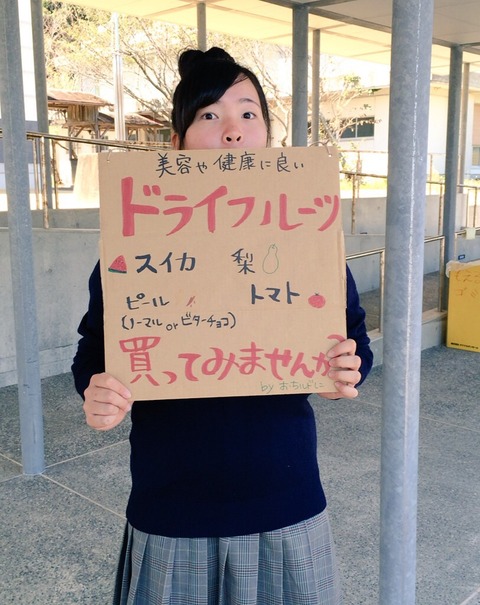 美容や健康に良い
ドライフルーツ
スイカ 梨
ピール トマト
(ノーマル or ビターチョコ)
買ってみませんか?
by